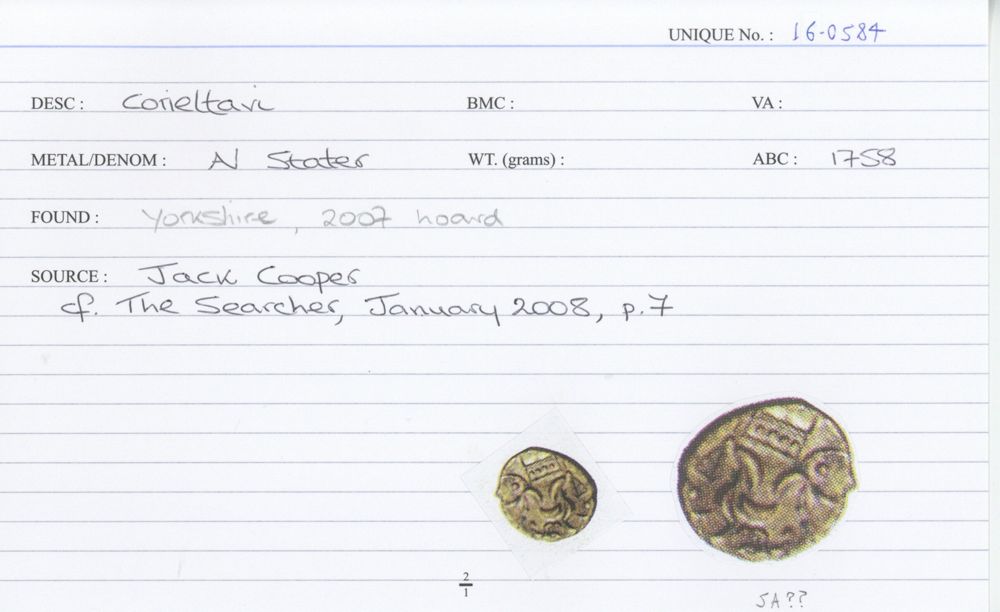 UNIQUE No. : 16-0584
DESC : Corieltavi BMC : VA :
METAL/DENOM : AV Stater WT. (grams) : ABC : 1758
FOUND : Yorkshire, 2007 hoard
SOURCE : Jack Cooper
cf. The Searcher, January 2008, p.7
2/1
SA??